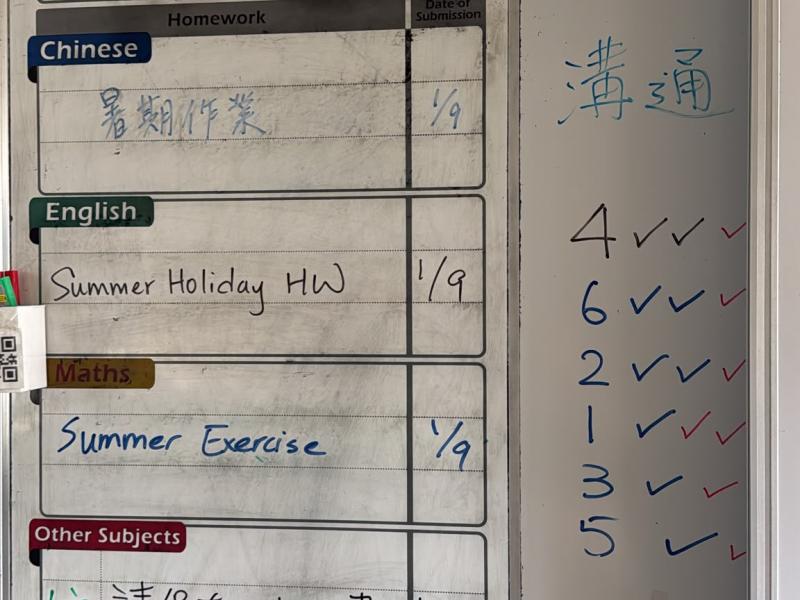 Homework
Date of
Submission
Chinese
暑期作業
1/9
English
Summer Holiday HW
1/9
Maths
Summer Exercise
1/9
Other Subjects
溝通
4 ✓ ✓ ✓
6 ✓ ✓ ✓
2 ✓ ✓ ✓
1 ✓ ✓ ✓
3 ✓ ✓
5 ✓ ✓